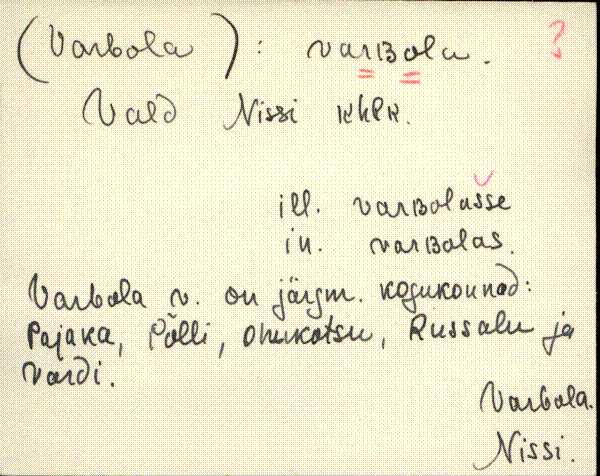 (Varbola): varʙola. ?
Vald Nissi khlk.
ill. varʙolasse
in. varʙolas.
Varbola v. on järgm. kogukonnad:
Pajaka, Põlli, Ohukotsu, Russalu ja
Vardi.
Varbola.
Nissi.